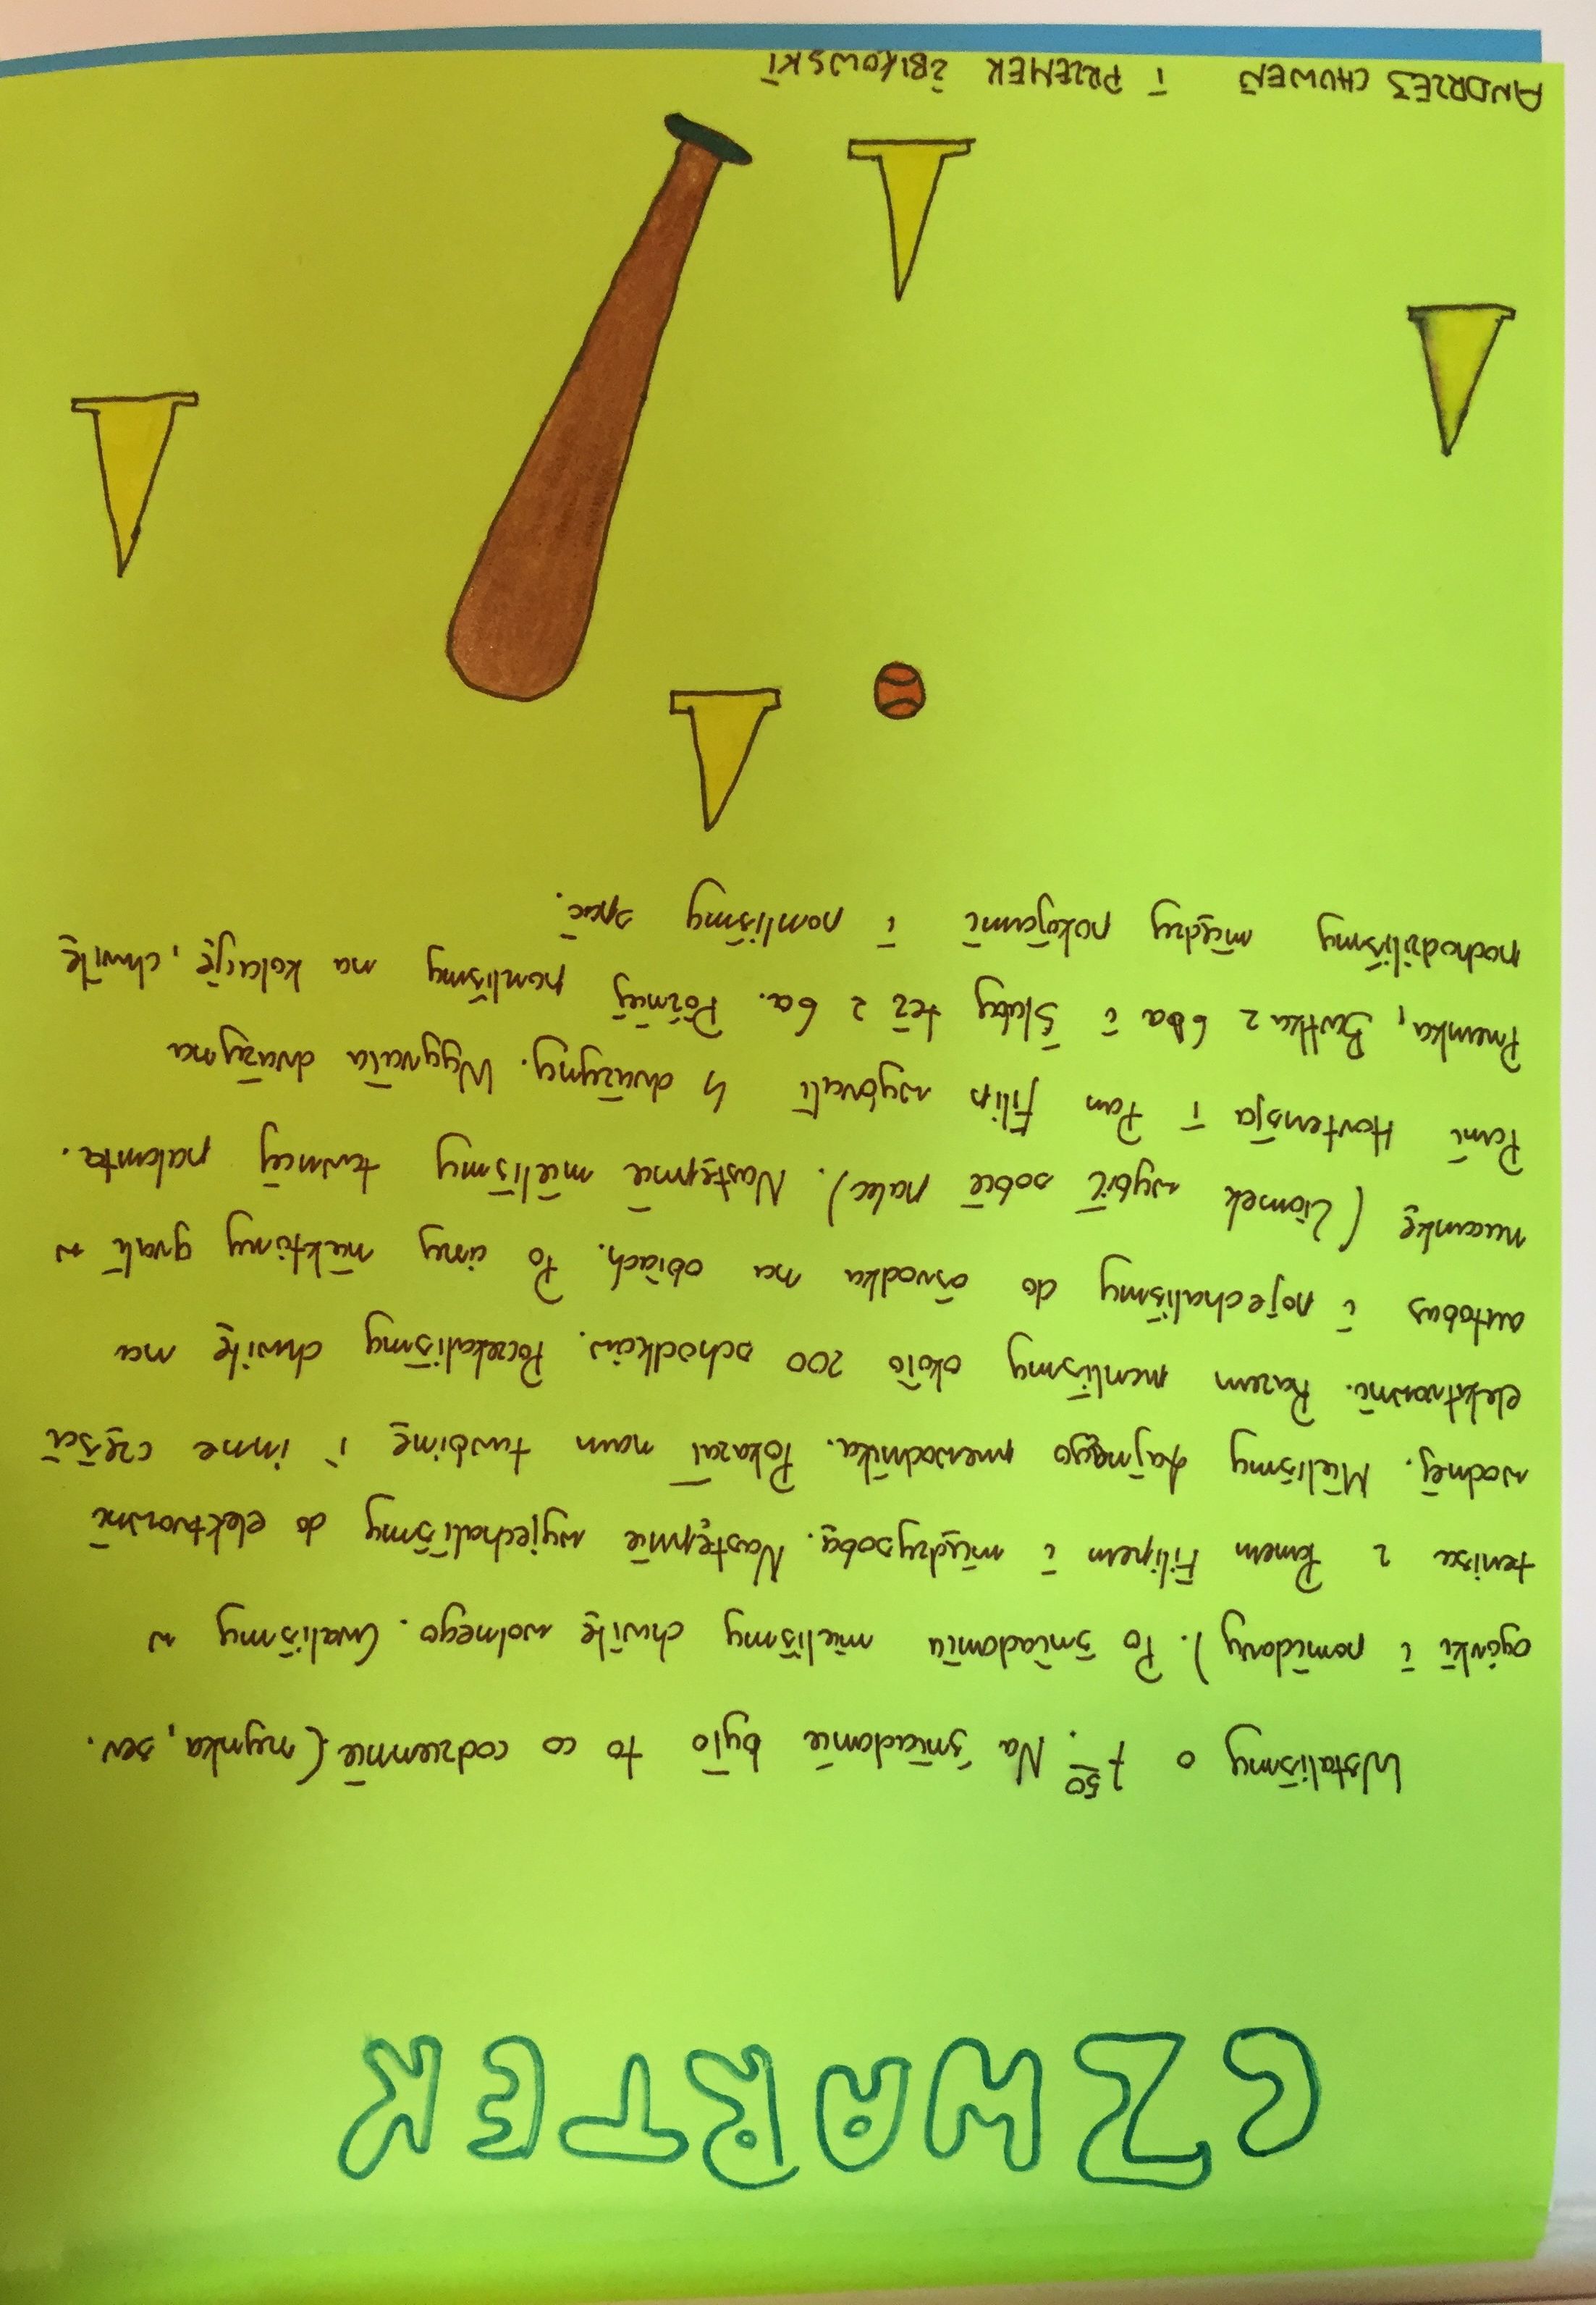 CZWARTEK
Wstaliśmy o 7⁵⁰. Na śniadanie było to co codziennie (szynka, ser,
ogórki i pomidory). Po śniadaniu mieliśmy chwilę wolnego. Graliśmy w
tenisa z Panem Filipem i międzysobą. Następnie wyjechaliśmy do elektrowni
wodnej. Mieliśmy fajnego przewodnika. Pokazał nam turbinę i inne części
elektrowni. Razem przeszliśmy około 200 schodków. Poczekaliśmy chwilę na
autobus i pojechaliśmy do ośrodka na obiad. Po ciszy niektórzy grali w
(Ziomek wybił sobie palec). Następnie mieliśmy turniej palanta.
Pani Hortensja i Pan Filip wybrali 4 drużyny. Wygrała drużyna
Przemka, Bartka z 6a i też z 6a. Później poszliśmy na kolację, chwilę
pochodziliśmy między pokojami i poszliśmy spać.
ANDRZEJ CHUWEŃ i PRZEMEK ŻBIKOWSKI